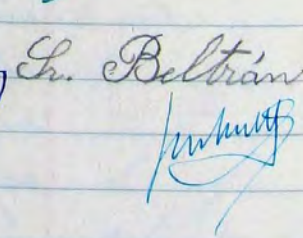 Sr. Beltrán